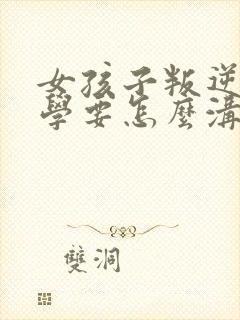 女孩子叛逆
學要怎麼溝
雙洞